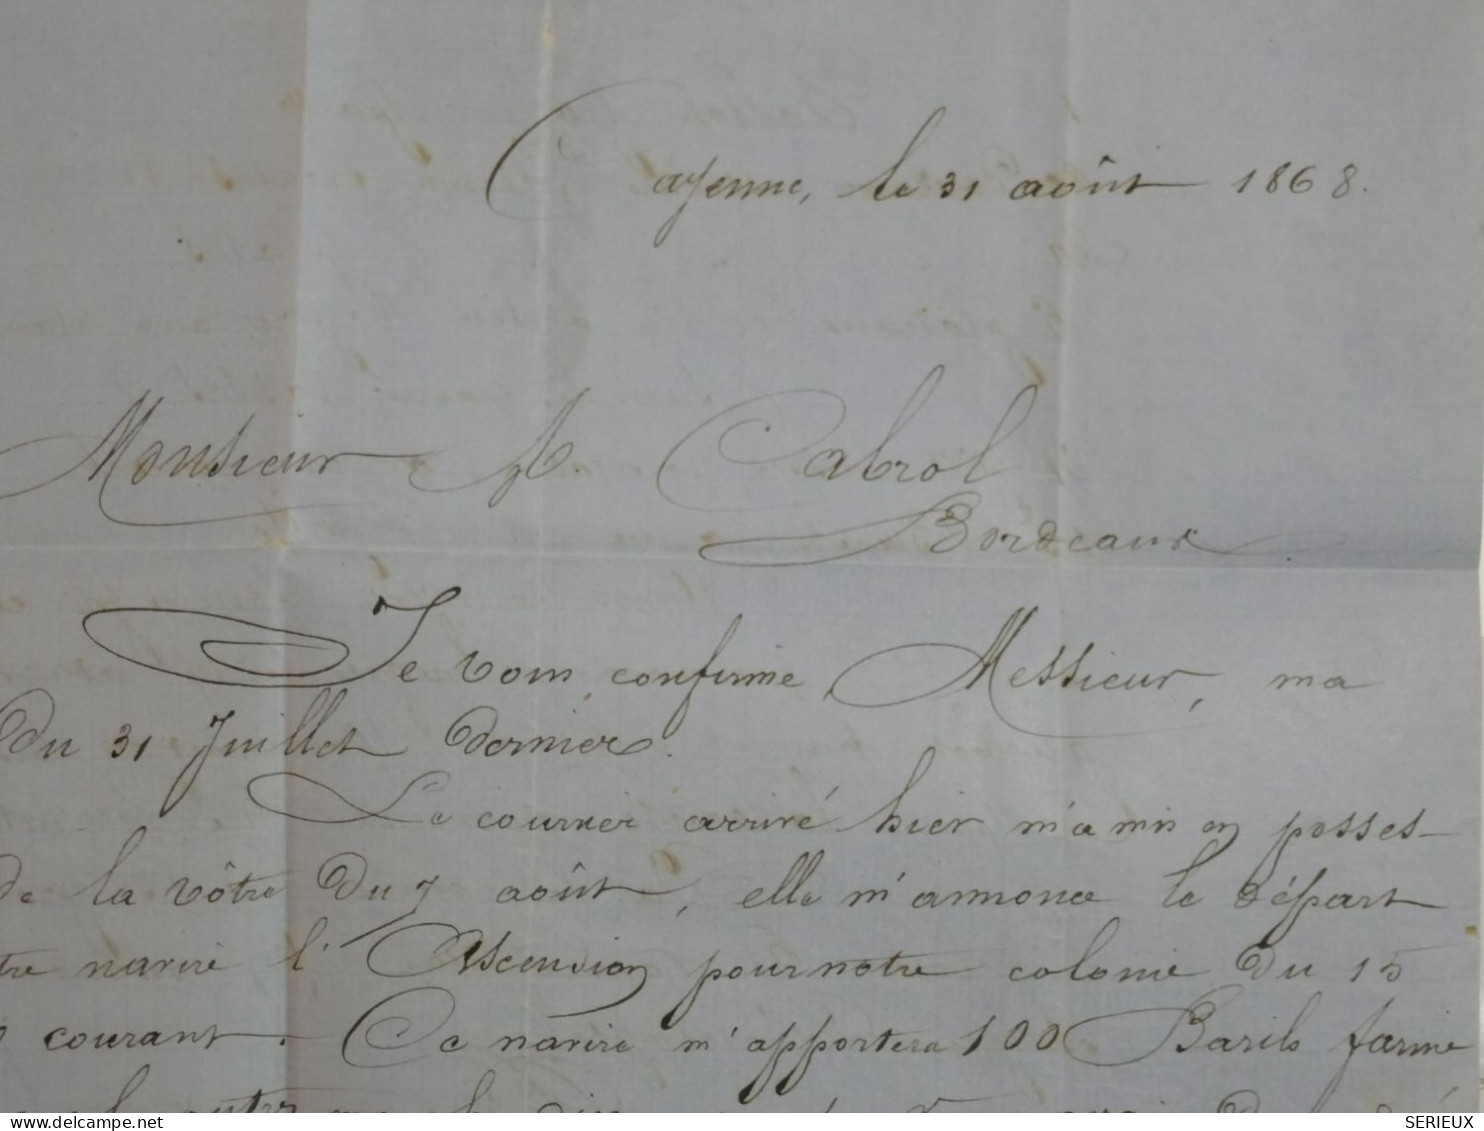 Cayenne, le 31 août 1868.
Monsieur A. Cabrol
Bordeaux
Je vous confirme, Messieur, ma
du 31 Juillet dernier.
Le courrier arrivé hier m'a mis en posses-
de la vôtre du 7 août, elle m'annonce le départ
tre navire l'Ascension pour notre colonie du 15
courant. Ce navire m'apportera 100 Barils farine
delcampe.net
SERIEUX